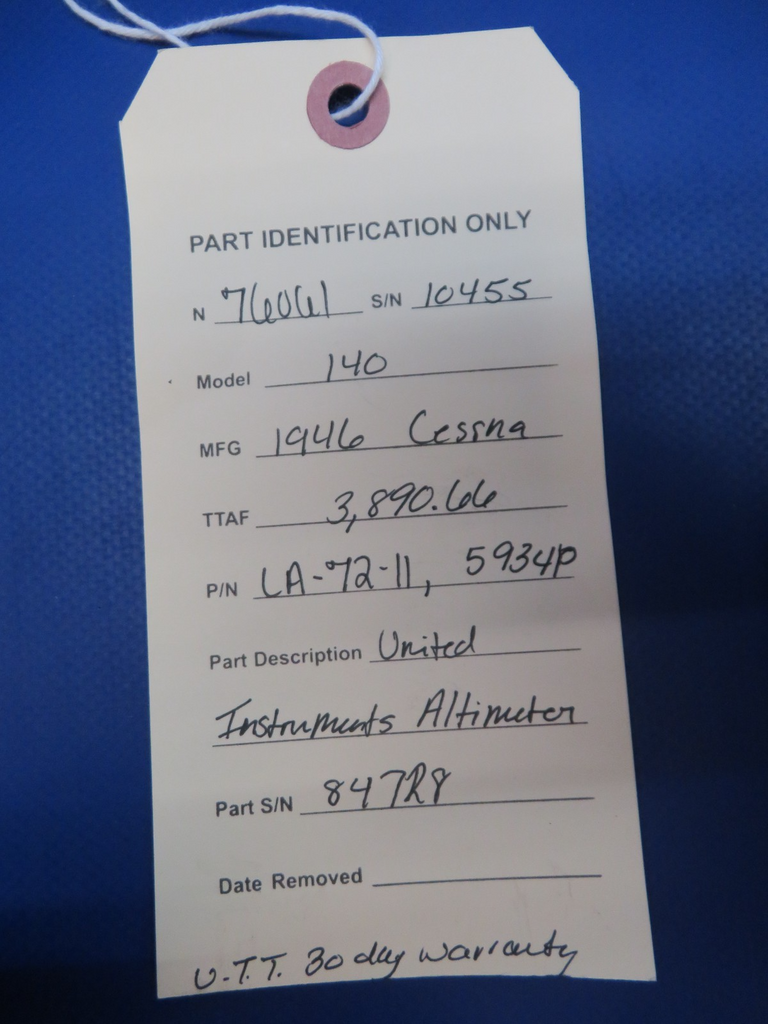 PART IDENTIFICATION ONLY
N 76061 S/N 10455
Model 140
MFG 1946 Cessna
TTAF 3,890.66
P/N LA-72-11, 5934P
Part Description United
Instruments Altimeter
Part S/N 847R8
Date Removed
U.T.T. 30 day warranty